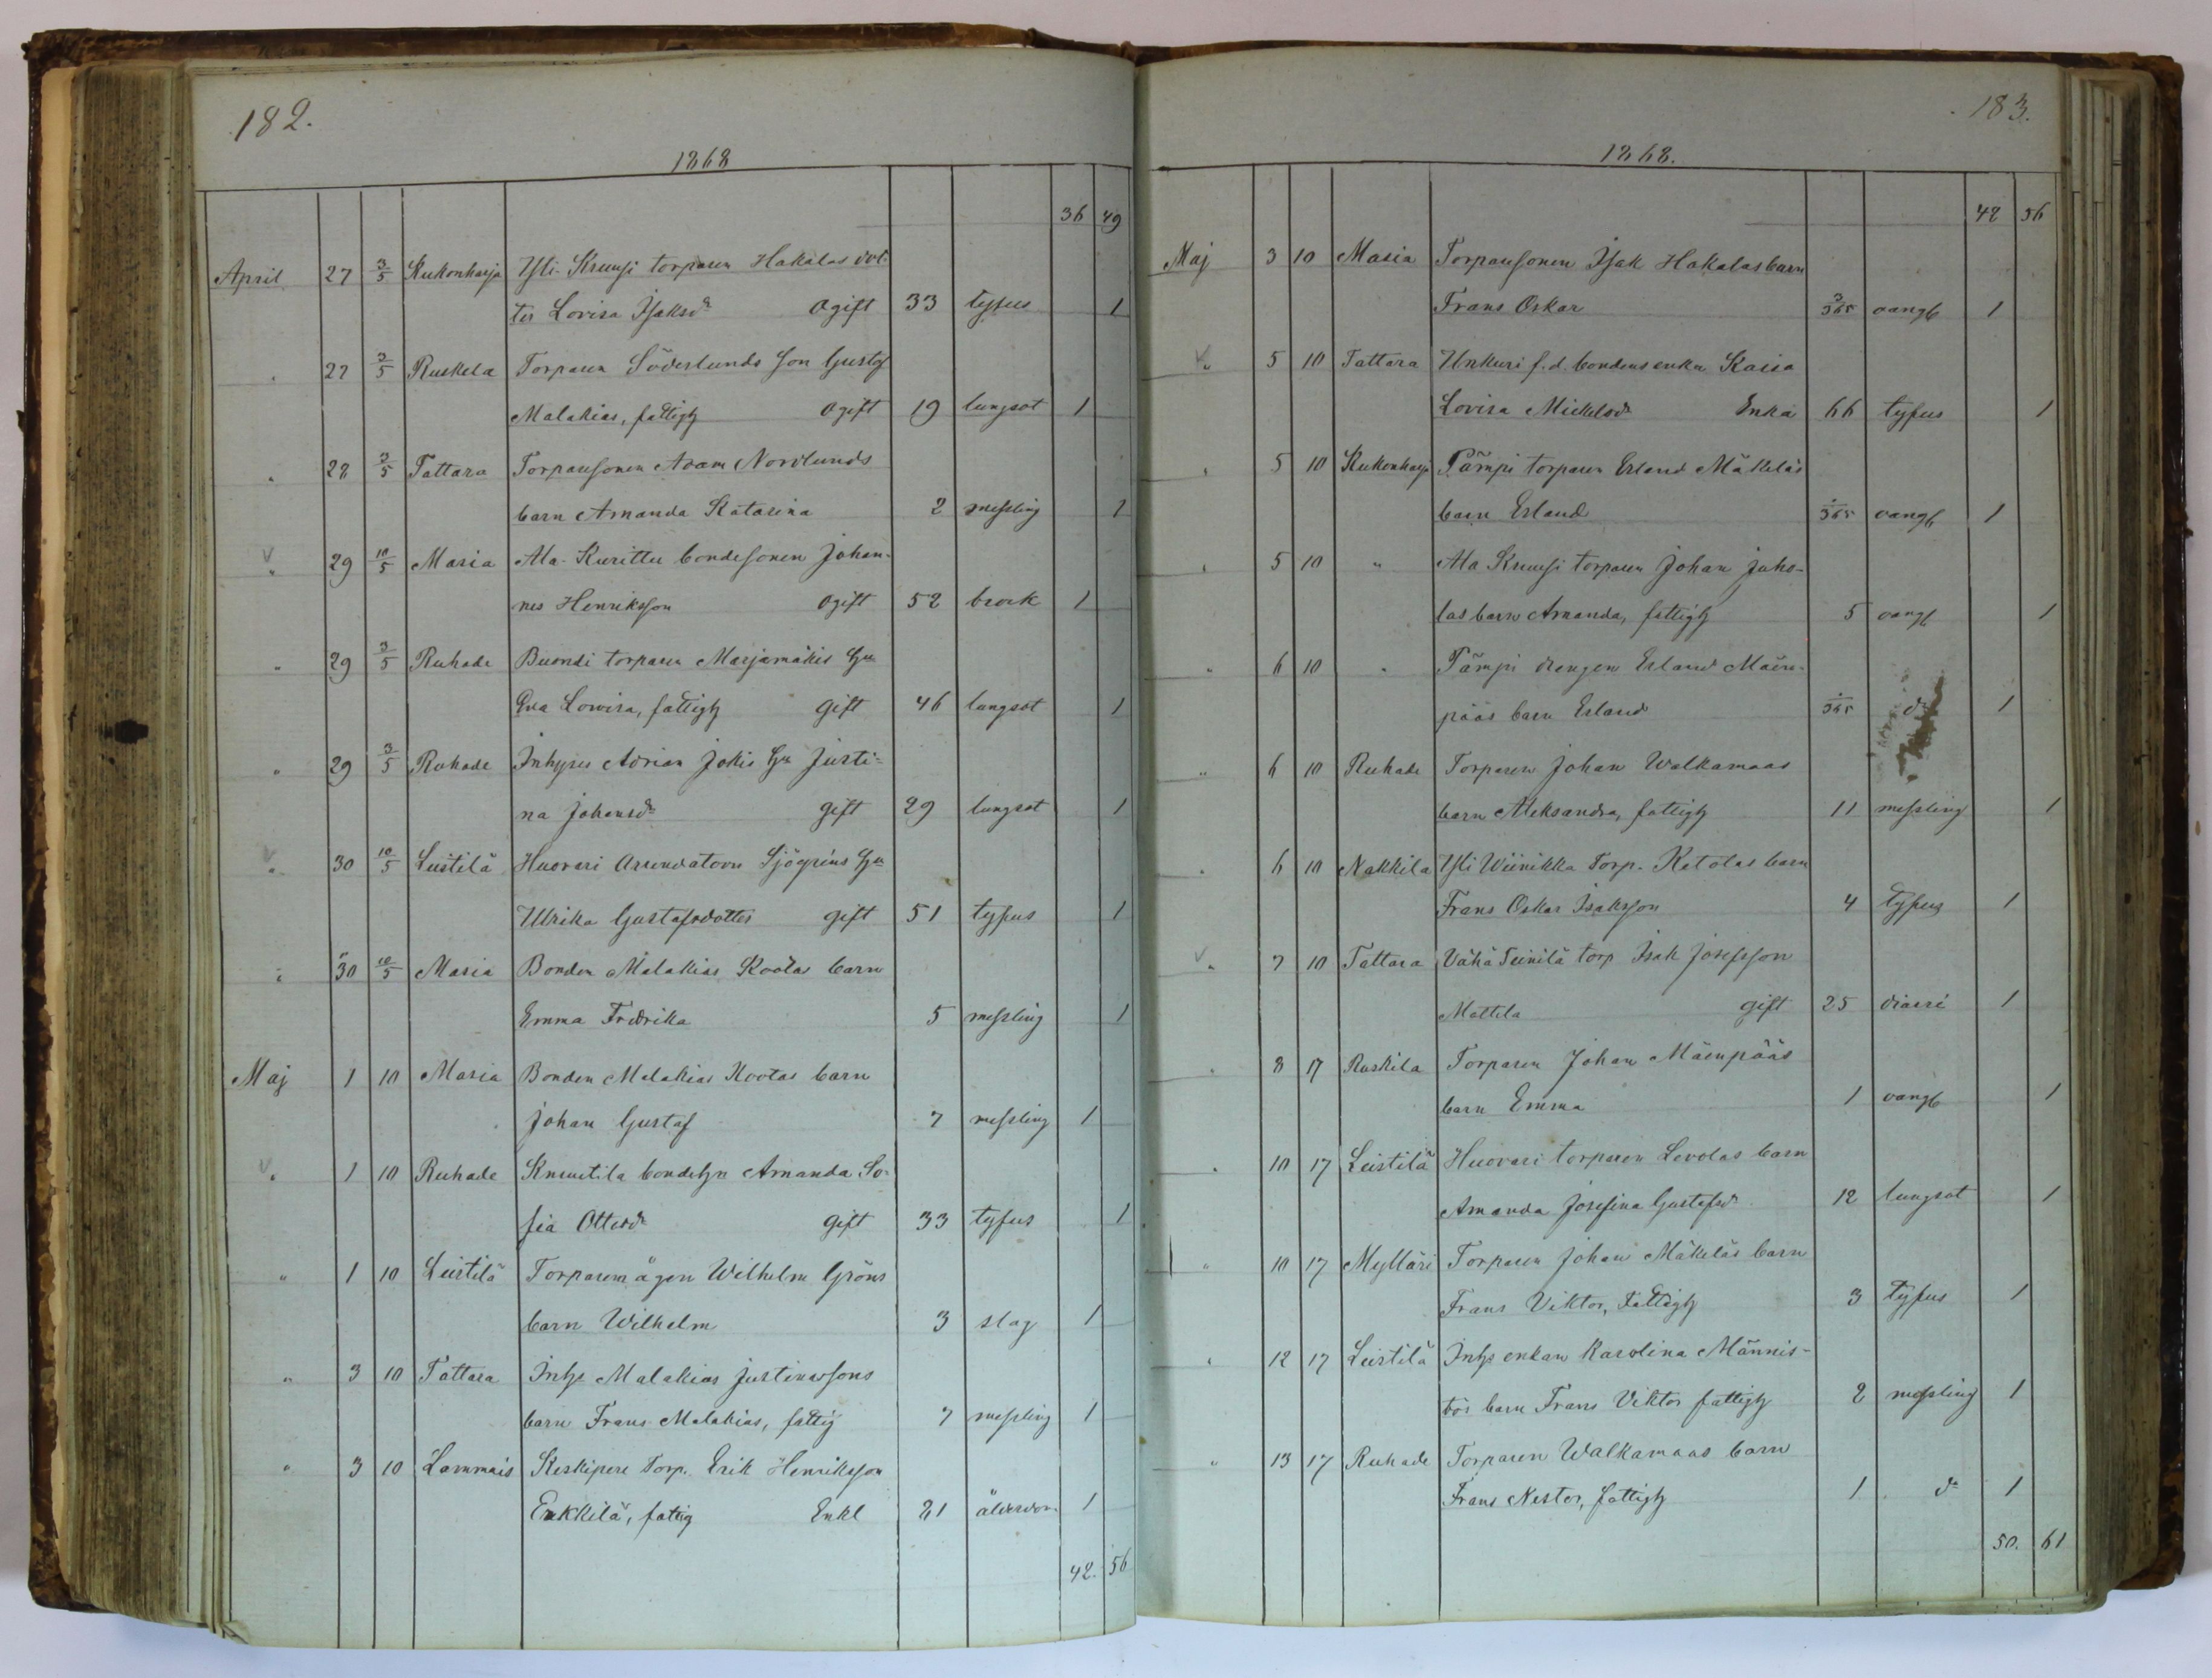 182.
1868
36 49
April 27 3/5 Kukonharja Yli-Kruusi torparen Hakalas dot-
ter Lovisa Isaksdr ogift 33 typus 1
" 27 3/5 Ruskela Torparen Söderlunds son Gustaf
Malakias, fattigh ogift 19 lungsot 1
" 28 3/5 Tattara Torparesonen Adam Nordlunds
barn Amanda Katarina 2 messling 1
V " 29 10/5 Masia Ala-Kurittu bondesonen Johan-
nes Henriksson ogift 52 brock 1
" 29 3/5 Ruhade Buondi torparen Marjamäkis hu
Eva Lowisa, fattigh gift 46 lungsot 1
" 29 3/5 Ruhade Inhyses Adrian Jokis hu Justi-
na Johansdr gift 29 lungsot 1
V " 30 10/5 Leistilä Huovari Arrendatorn Sjögréns hu
Ulrika Gustafsdotter gift 51 typus 1
" 30 10/5 Masia Bonden Malakias Kootas barn
Emma Fredrika 5 messling 1
Maj 1 10 Masia Bonden Malakias Kootas barn
Johan Gustaf 7 messling 1
V " 1 10 Ruhade Knuutila bondehu Amanda So-
fia Ottosdr gift 33 tyfus 1
" 1 10 Leistilä Torparemågen Wilhelm Gröns
barn Wilhelm 3 slag 1
" 3 10 Tattara Inhs Malakias Justinussons
barn Frans Malakias, fattig 7 messling 1
" 3 10 Lammais Keskipere Torp. Erik Henriksson
Erkkilä, fattig Enkl 81 ålderdom 1
42. 56
183.
1868.
42 56
Maj 3 10 Masia Torparesonen Isak Hakalas barn
Frans Oskar 3/365 oangf 1
V " 5 10 Tattara Unkuri f.d. bondens enka Kaisa
Lovisa Mickelsdr Enka 66 typus 1
" 5 10 Kukonharja Pämpi torparen Erland Mäkeläs
barn Erland /365 oangf 1
" 5 10 " Ala Kruusi torparen Johan Juho-
las barn Amanda, fattigh 5 oangf 1
" 6 10 " Pämpi drengen Erland Mäen-
pääs barn Erland /365 do 1
" 6 10 Ruhade Torparen Johan Walkamaas
barn Aleksandra, fattigh 11 messling 1
" 6 10 Nakkila Yli Wiinikka Torp. Ketolas barn
Frans Oskar Isaksson 4 typus 1
V " 7 10 Tattara Vähä Teinilä torp Isak Josefsson
Mattila gift 25 diarré 1
" 8 17 Ruskila Torparen Johan Mäenpääs
barn Emma 1 oangf 1
" 10 17 Leistilä Huovari torparen Levolas barn
Amanda Josefina Gustafsdr 12 lungsot 1
" 10 17 Mylläri Torparen Johan Mäkeläs barn
Frans Viktor, fattigh 3 typus 1
" 12 17 Leistilä Inhs enkan Karolina Männis-
tös barn Frans Viktor fattigh 2 messling 1
" 13 17 Ruhade Torparen Walkamaas barn
Frans Nestor, fattigh 1 do 1
50. 61